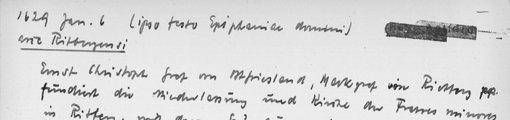 1629 Jan. 6 (ipso festo Epiphaniae domini)
arce Rittbergensi
Ernst Christoph Graf von Ostfriesland, Markgraf von Rietberg pp.
fundiert die Niederlassung und Kirche der Fratres minores
in